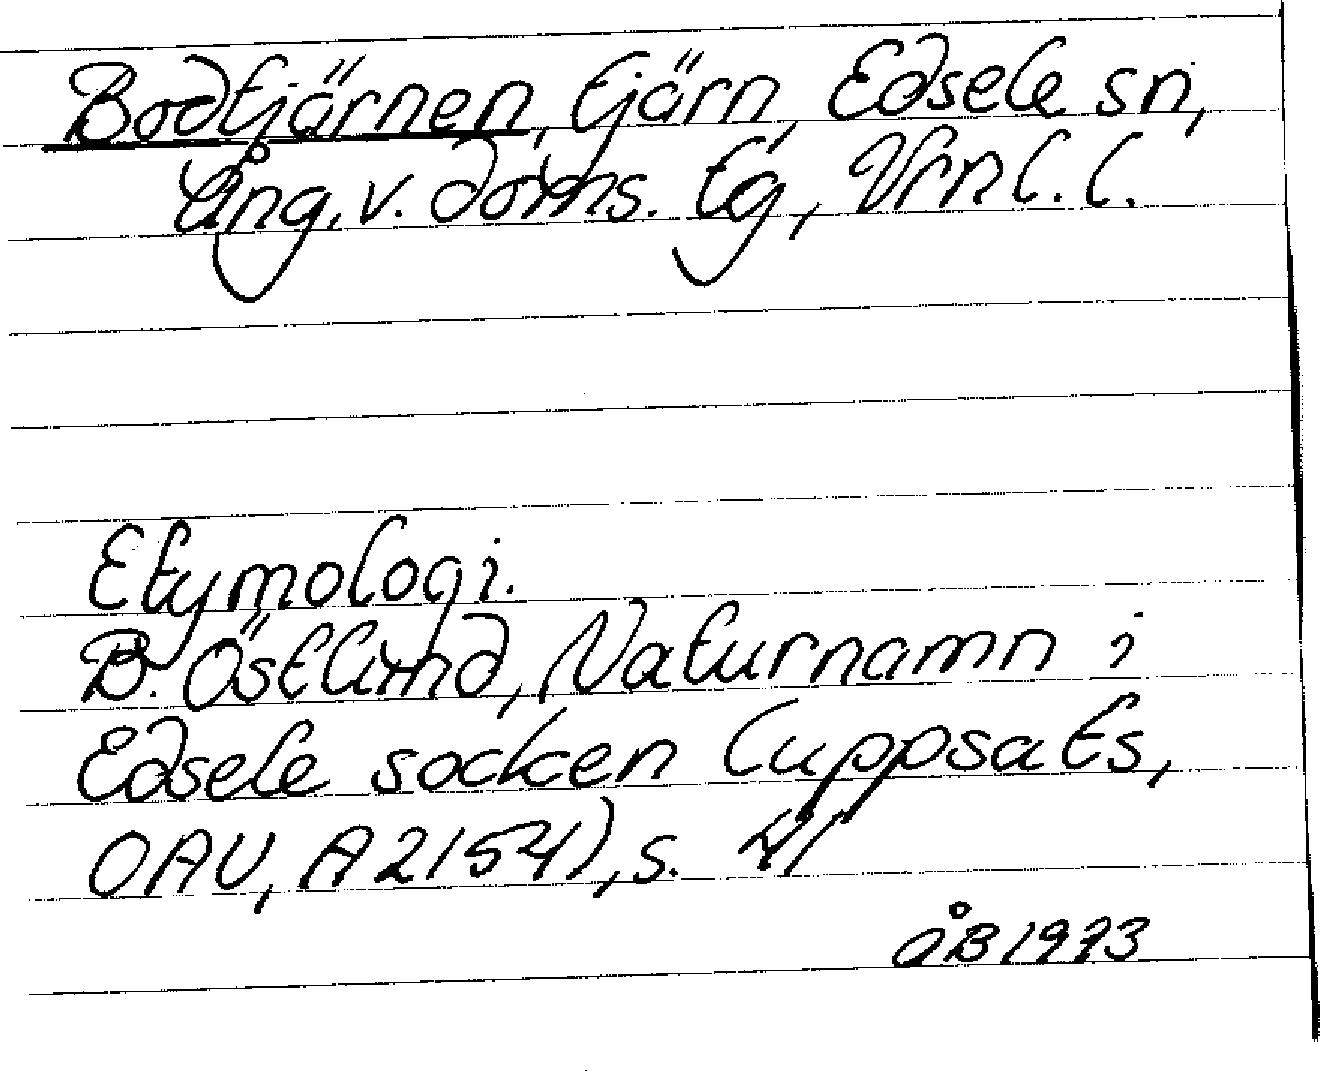 Bodtjärnen, tjärn, Edsele sn,
Ång. v. doms. tg, Vrnl. l.
Etymologi.
B. Östlund, Naturnamn i
Edsele socken (uppsats,
OAU, A 2154), s. 41
ÅB 1973